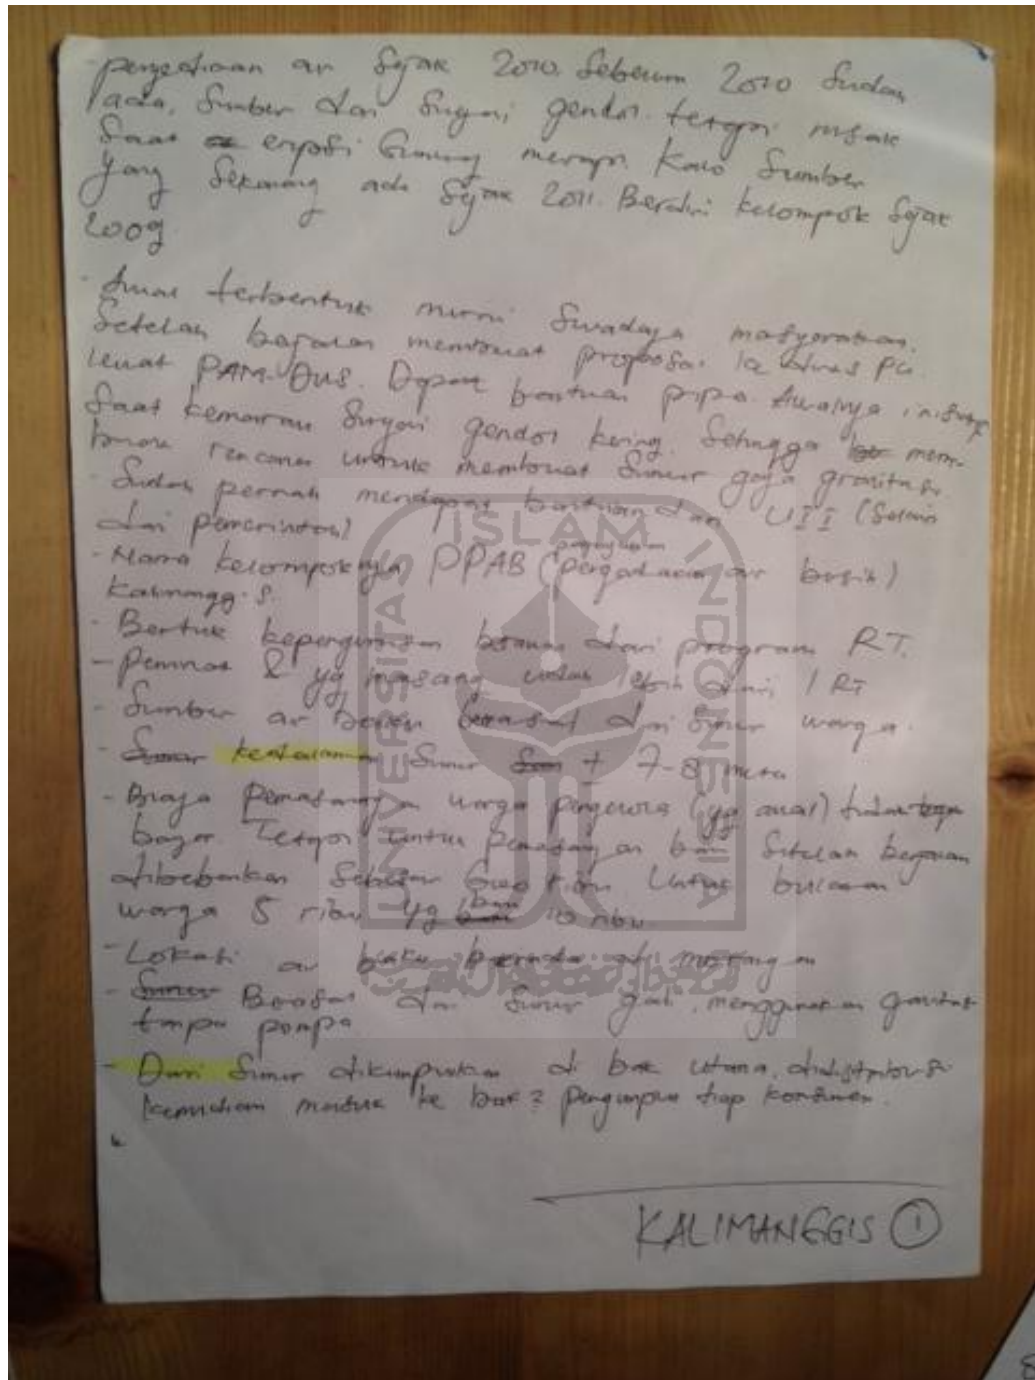 - penyediaan air sejak 2010. Sebelum 2010 sudah
ada. Sumber dari Sungai gendol. tetapi rusak
saat erupsi Gunung merapi. Kalo Sumber
yang Sekarang ada Sejak 2011. Berdiri kelompok Sejak
2009
- Awal terbentuk murni Swadaya masyarakat.
Setelah berjalan membuat proposal ke dinas PU.
lewat PAM-DUS. Dapat bantuan pipa. Awalnya inisiatif
Saat kemarau Sungai gendol kering. Sehingga mem-
buat rencana untuk membuat Sumur gaya gravitasi.
- Sudah pernah mendapat bantuan dari UII (Selain
dari pemerintah)
- Nama kelompoknya PPAB (paguyuban pengadaan air bersih)
Kalimanggis.
- Bentuk kepengurusan berawal dari program RT.
- Peminat & yg masang sudah lebih dari 1 RT
- Sumber air berasal dari Sumur warga.
- Sumur kedalaman Sumur ± 7-8 meter
- Biaya pemasangan warga pengelola (yg awal) tidak
bayar. Tetapi untuk pemasangan baru Setelah berjalan
dibebankan Sebesar 600 ribu Untuk bulanan
warga 5 ribu yg baru 10 ribu.
- Lokasi air baku berada di morangan
- Sumur Berasal dari Sumur gali, menggunakan gravitasi
tanpa pompa
- Dari Sumur dikumpulkan di bak utama, didistribusi
kemudian masuk ke bak2 pengumpul tiap konsumen.
KALIMANGGIS 1
UNIVERSITAS ISLAM INDONESIA